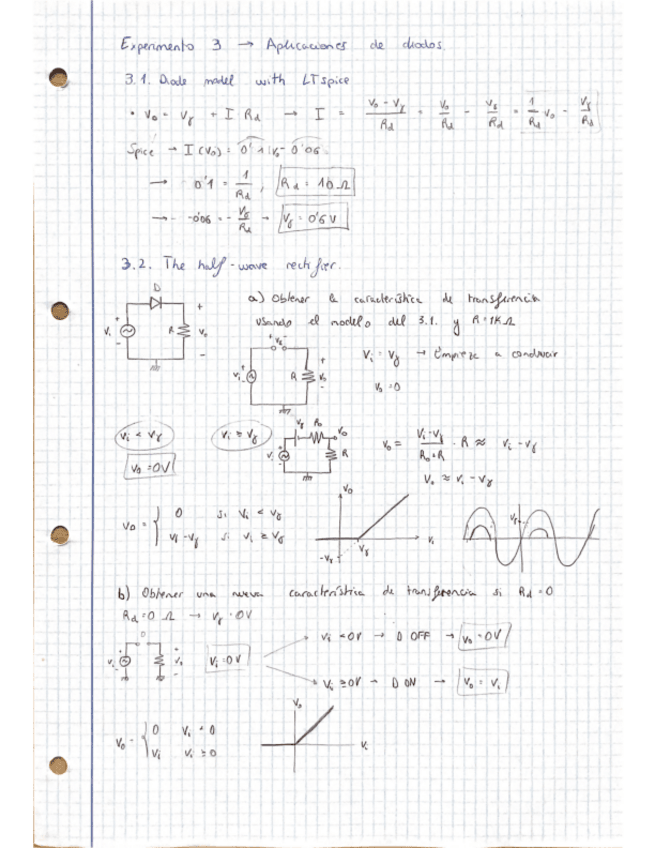 Experimento 3 → Aplicaciones de diodos
3.1. Diode model with LTspice
• V₀ = Vγ + I · Rd → I = (V₀ - Vγ)/Rd = V₀/Rd - Vγ/Rd = 1/Rd V₀ - Vγ/Rd
Spice → I(V₀) = 0'1 V₀ - 0'06
→ 0'1 = 1/Rd, Rd = 10 Ω
→ -0'06 = - Vγ/Rd → Vγ = 0'6 V
3.2. The half-wave rectifier.
D
+
Vi R V₀
-
a) Obtener la característica de transferencia
usando el modelo del 3.1. y R = 1K Ω
+ Vγ -
Vi R V₀
Vi = Vγ → Empieza a conducir
V₀ = 0
Vi < Vγ
V₀ = 0V
Vi ≥ Vγ
Vγ RD V₀
Vi R
V₀ = (Vi - Vγ)/(RD + R) · R ≈ Vi - Vγ
V₀ ≈ Vi - Vγ
V₀ = { 0 si Vi < Vγ
Vi - Vγ si Vi ≥ Vγ
V₀
Vi
-Vγ Vγ
Vγ
b) Obtener una nueva característica de transferencia si Rd = 0
Rd = 0 Ω → Vγ = 0V
D
Vi V₀
Vi = 0V
Vi < 0V → D OFF → V₀ = 0V
Vi ≥ 0V → D ON → V₀ = Vi
V₀ = { 0 Vi < 0
Vi Vi ≥ 0
V₀
Vi